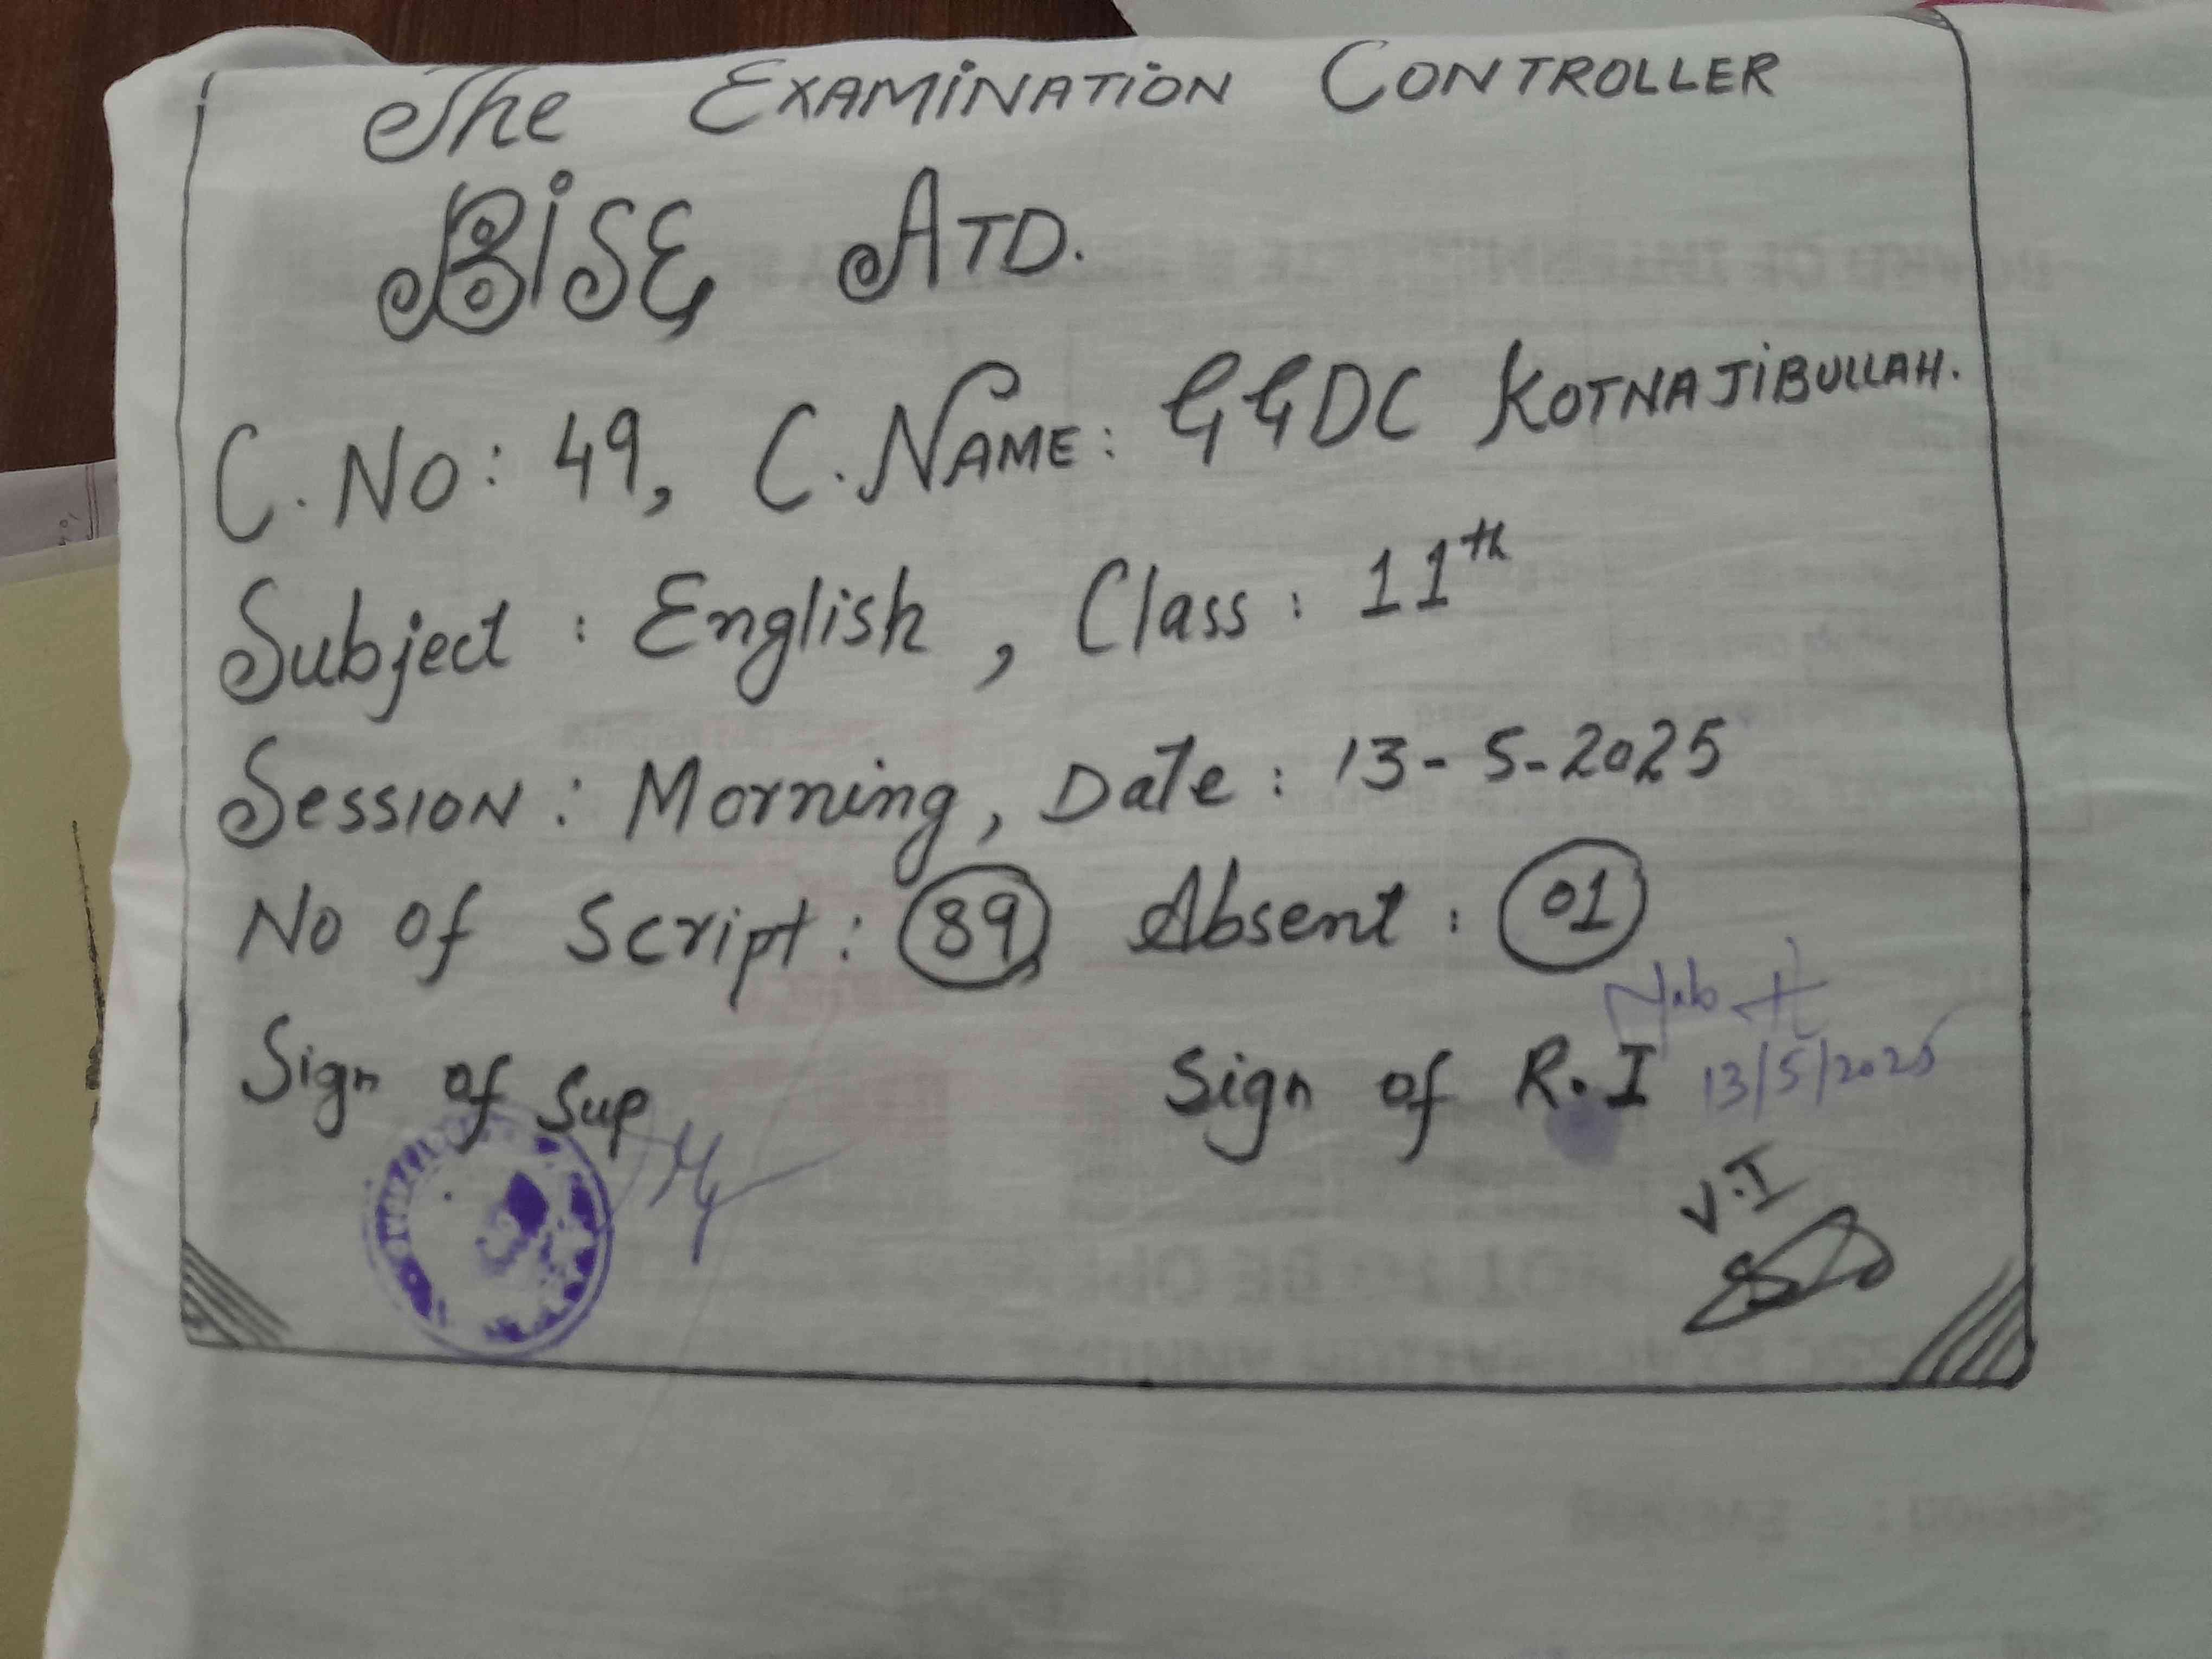 The EXAMINATION CONTROLLER
BISE ATD.
C. NO: 49, C. NAME: GGDC KOTNAJIBULLAH.
Subject : English , Class : 11th
SESSION : Morning, Date : 13-5-2025
No of Script : 89, Absent : 01
Sign of Sup
Sign of R.I 13/5/2025
V.I